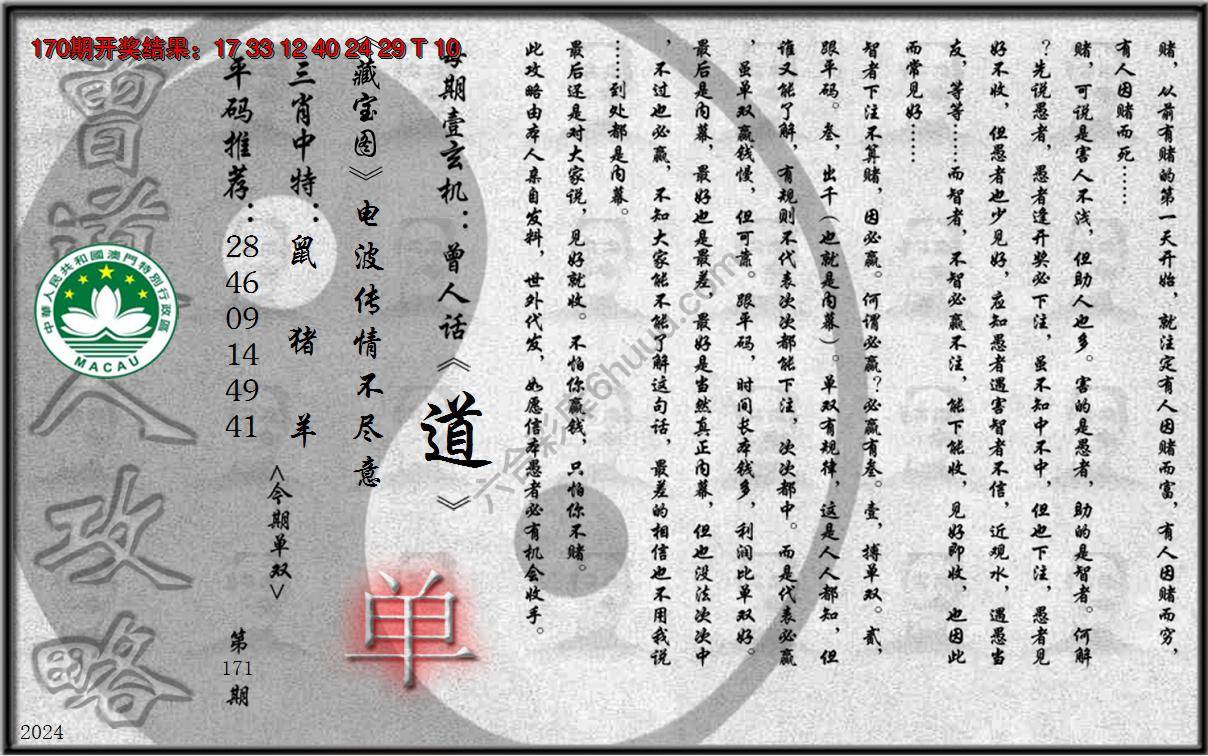 170期开奖结果：17 33 12 40 24 29 T 10
赌，从前有赌的第一天开始，就注定有人因赌而富，有人因赌而穷，
有人因赌而死……
赌，可说是害人不浅，但助人也多。害的是愚者，助的是智者。何解
？先说愚者，愚者逢开奖必下注，虽不知中不中，但也下注，愚者见
好不收，但愚者也少见好，应知愚者遇害智者不信，近观水，遇愚当
友，等等……而智者，不智必赢不注，能下能收，见好即收，也因此
而常见好……
智者下注不算赌，因必赢。何谓必赢？必赢有叁。壹，搏单双。贰，
跟平码。叁，出千（也就是内幕）。单双有规律，这是人人都知，但
谁又能了解，有规则不代表次次都能下注，次次都中。而是代表必赢
，虽单双赢钱慢，但可靠。跟平码，时间长本钱多，利润比单双好。
最后是内幕，最好也是最差，最好是当然真正内幕，但也没法次次中
，不过也必赢，不知大家能不能了解这句话，最差的相信也不用我说
……到处都是内幕。
最后还是对大家说，见好就收。不怕你赢钱，只怕你不赌。
此攻略由本人亲自发料，世外代发，如愿信本愚者必有机会收手。
每期壹玄机：曾人话《道》
《藏宝图》电波传情不尽意
三肖中特：鼠 猪 羊
平码推荐：28 46 09 14 49 41
<今期单双>
单
第171期
曾道人攻略
中華人民共和國澳門特別行政區
MACAU
六合彩库6huuu.com
2024